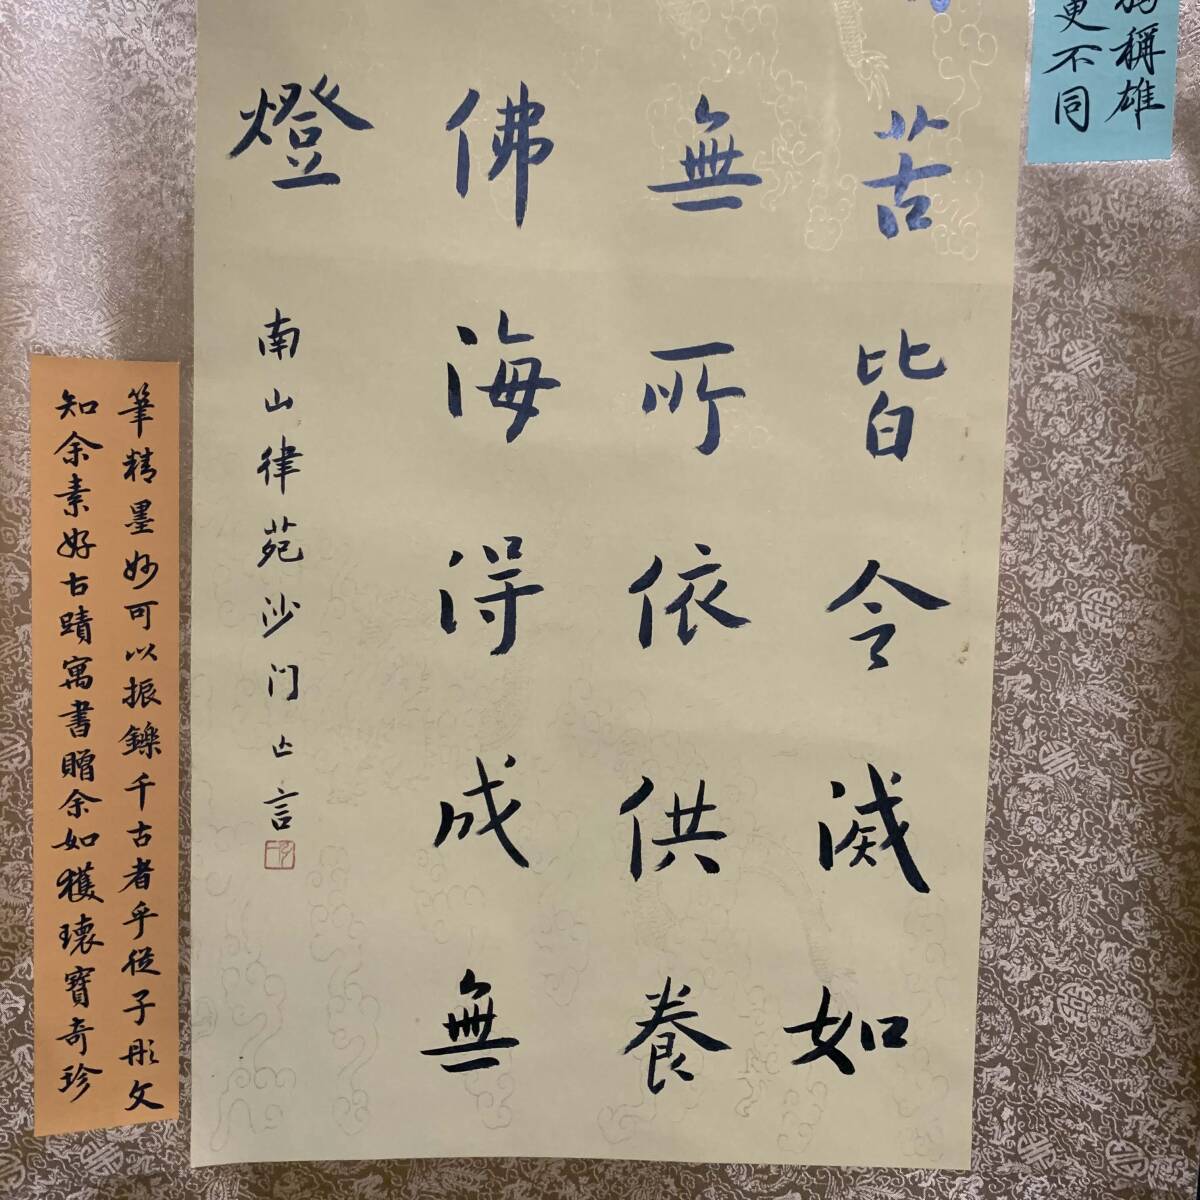 稱雄
更不同
苦皆令滅如
無所依供養
佛海得成無
燈
南山律苑沙門亡言
筆精墨妙可以振鑠千古者乎從子彤文
知余素好古蹟寓書贈余如獲瓌寶奇珍